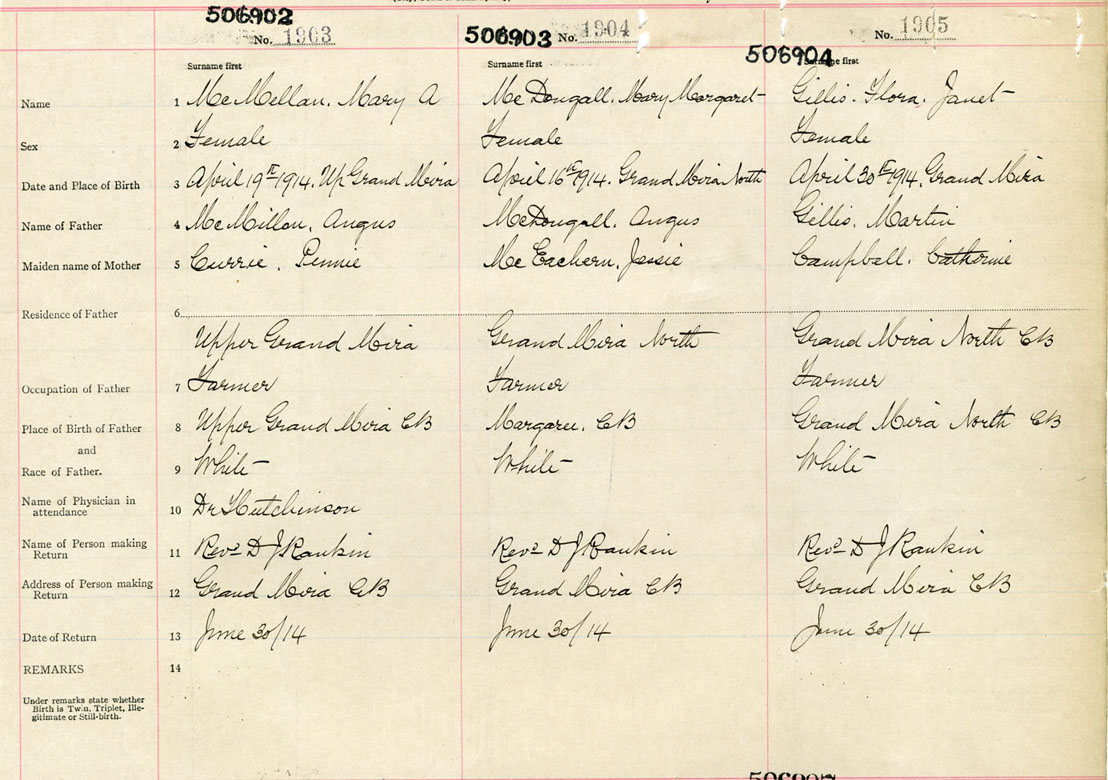 506902 No. 1903 506903 No. 1904 506904 No. 1905
Surname first Surname first Surname first
Name 1 McMellan, Mary A McDougall, Mary Margaret Gillis, Flora, Janet
Sex 2 Female Female Female
Date and Place of Birth 3 April 19th 1914. Up Grand Mira April 16th 1914. Grand Mira North April 30th 1914, Grand Mira
Name of Father 4 McMillan, Angus McDougall, Angus Gillis, Martin
Maiden name of Mother 5 Currie, Pennie McEachern, Jessie Campball, Catherine
Residence of Father 6
Upper Grand Mira Grand Mira North Grand Mira North CB
Occupation of Father 7 Farmer Farmer Farmer
Place of Birth of Father 8 Upper Grand Mira CB Margaree, CB Grand Mira North CB
and
Race of Father. 9 White White White
Name of Physician in
attendance 10 Dr Hutchinson
Name of Person making
Return 11 Revd D J Rankin Revd D J Rankin Revd D J Rankin
Address of Person making
Return 12 Grand Mira CB Grand Mira CB Grand Mira CB
Date of Return 13 June 30/14 June 30/14 June 30/14
REMARKS 14
Under remarks state whether
Birth is Twin, Triplet, Ille-
gitimate or Still-birth.